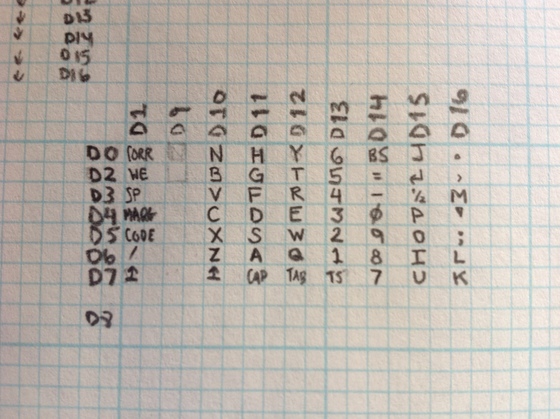 ← D13
D14
← D15
← D16
D1 D9 D10 D11 D12 D13 D14 D15 D16
D0 CORR N H Y 6 BS J .
D2 WE B G T 5 = ↵ ,
D3 SP V F R 4 - ½ M
D4 MARG C D E 3 Ø P
D5 CODE X S W 2 9 O ;
D6 / Z A Q 1 8 I L
D7 ↥ ↥ CAP TAB TS 7 U K
D8